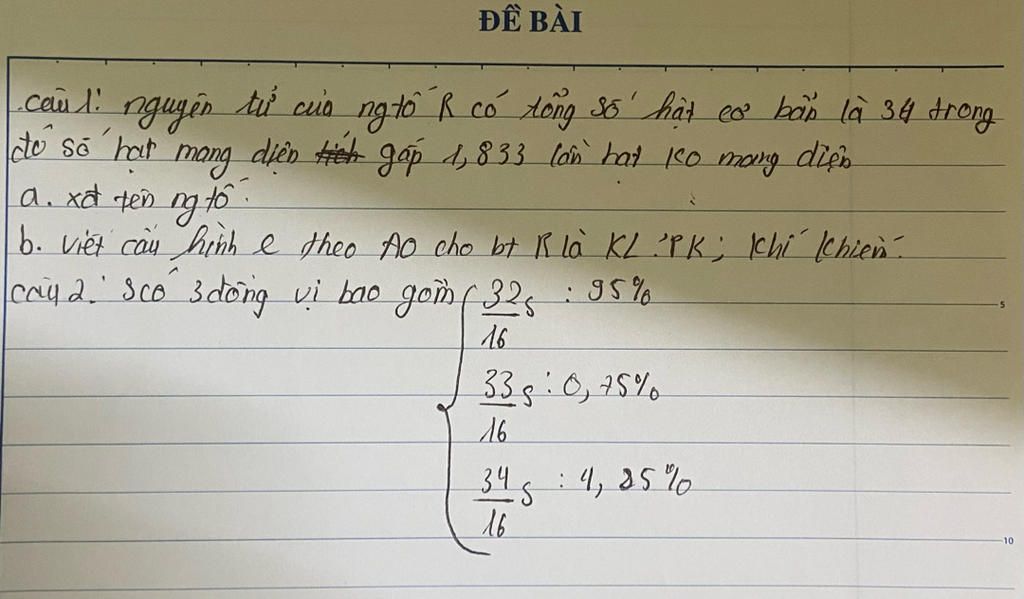 ĐỀ BÀI
câu 1: nguyên tử của ngtố R có tổng số hạt cơ bản là 34 trong
đó số hạt mang điện gấp 1,833 lần hạt ko mang điện
a. xđ tên ngtố.
b. viết cấu hình e theo AO cho bt R là KL; PK; khí khiếm.
câu 2: S có 3 đồng vị bao gồm { 32/16 S : 95%
33/16 S : 0,75%
34/16 S : 4,25%
5
10